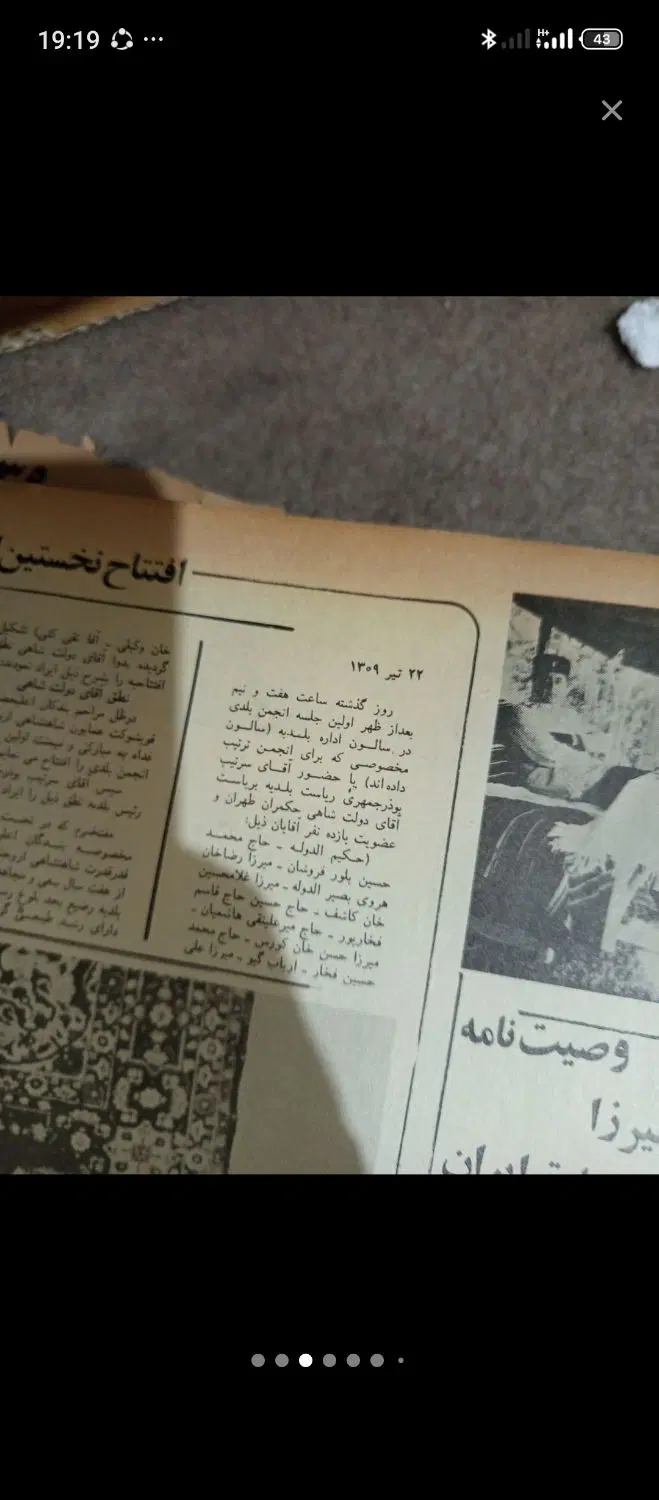 19:19
H+
43
افتتاح نخستین
۲۲ تیر ۱۳۰۹
روز گذشته ساعت هفت و نیم
بعداز ظهر اولین جلسه انجمن بلدی
در سالون اداره بلدیه (سالون
مخصوصی که برای انجمن ترتیب
داده‌اند) با حضور آقای سرتیپ
بوذرجمهری ریاست بلدیه بریاست
آقای دولت شاهی حکمران طهران و
عضویت یازده نفر آقایان ذیل:
(حکیم الدوله ـ حاج محمد
حسین بلور فروشان ـ میرزا رضاخان
هروی بصیر الدوله ـ میرزا غلامحسین
خان کاشف ـ حاج حسین حاج قاسم
فخارپور ـ حاج میرعلینقی هاشمیان ـ
میرزا حسن خان کورس ـ حاج محمد
حسین فخار ـ ارباب گیو ـ میرزا علی
خان وکیلی ـ آقا تقی کنی) تشکیل
گردیده بدوا آقای دولت شاهی
افتتاحیه را بشرح ذیل ایراد نمودند
نطق آقای دولت شاهی
درظل مراحم بندگان
قویشوکت همایون شاهنشاهی
فداه به مبارکی و میمنت اولین
انجمن بلدی را افتتاح می
سپس آقای سرتیپ
رئیس بلدیه نطق ذیل را ایراد
مفتخرم که در نخست
مخصوصه بندگان
قدرقدرت شاهنشاهی
از هفت سال سعی و
بلدیه رضیع بحد بلوغ
دارای رشد طبیعی
وصیت‌نامه
ایران